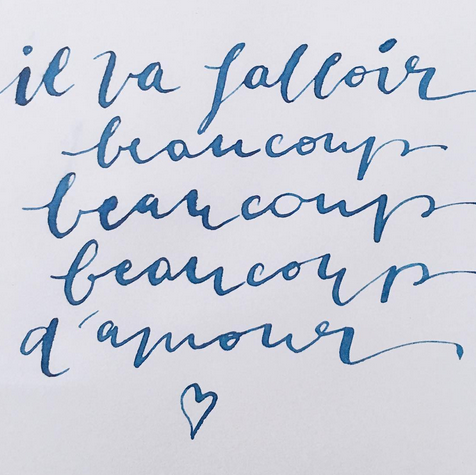 il va falloir
beaucoup
beaucoup
beaucoup
d'amour